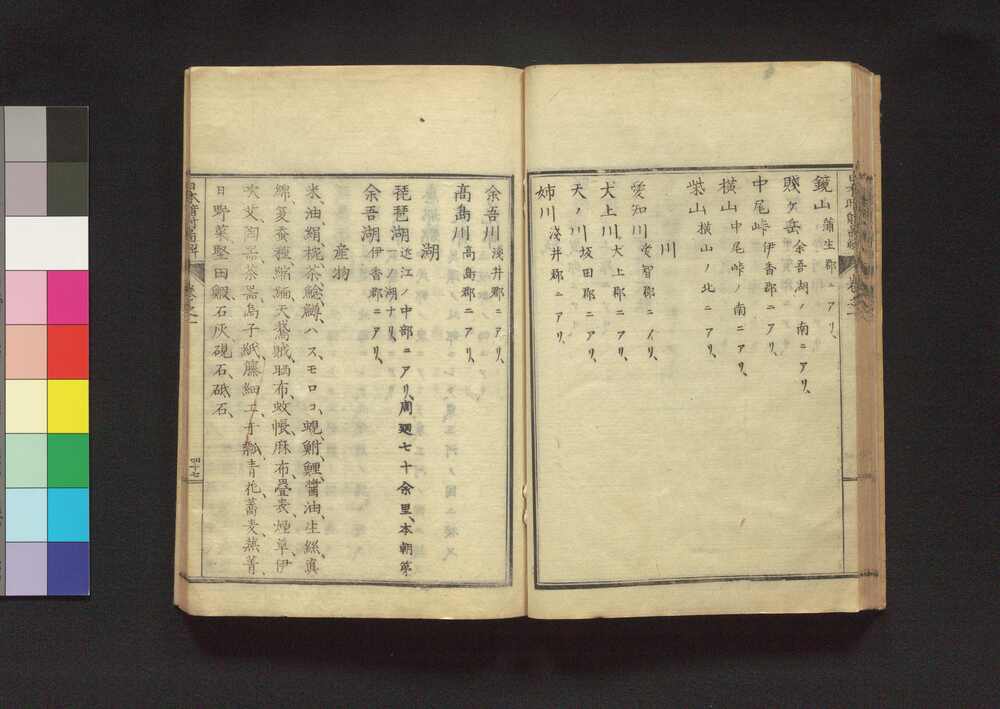 鏡山 蒲生郡ニアリ、
賤ヶ岳 余吾湖ノ南ニアリ、
中尾峠 伊香郡ニアリ、
横山 中尾峠ノ南ニアリ、
柴山 横山ノ北ニアリ、
川
愛知川 愛智郡ニ入リ、
犬上川 犬上郡ニアリ、
天ノ川 坂田郡ニアリ、
姉川 淺井郡ニアリ、
余吾川 淺井郡ニアリ、
高島川 高島郡ニアリ、
湖
琵琶湖 近江ノ中部ニアリ、周廻七十余里、本朝第
一ノ湖ナリ、
余吾湖 伊香郡ニアリ、
産物
米、油、絹、椀、茶、鯰、鱒、ハス、モロコ、蜆、鮒、鯉、醤油、生絲、眞
綿、蠶種、縮緬、天鵞絨、晒布、蚊帳、麻布、疊表、煙草、伊
吹艾、陶器、茶器、烏子紙、籐細工、干瓢、青花、蕎麦、蕪菁、
日野菜、堅田鰕、石灰、硯石、砥石、
四十七